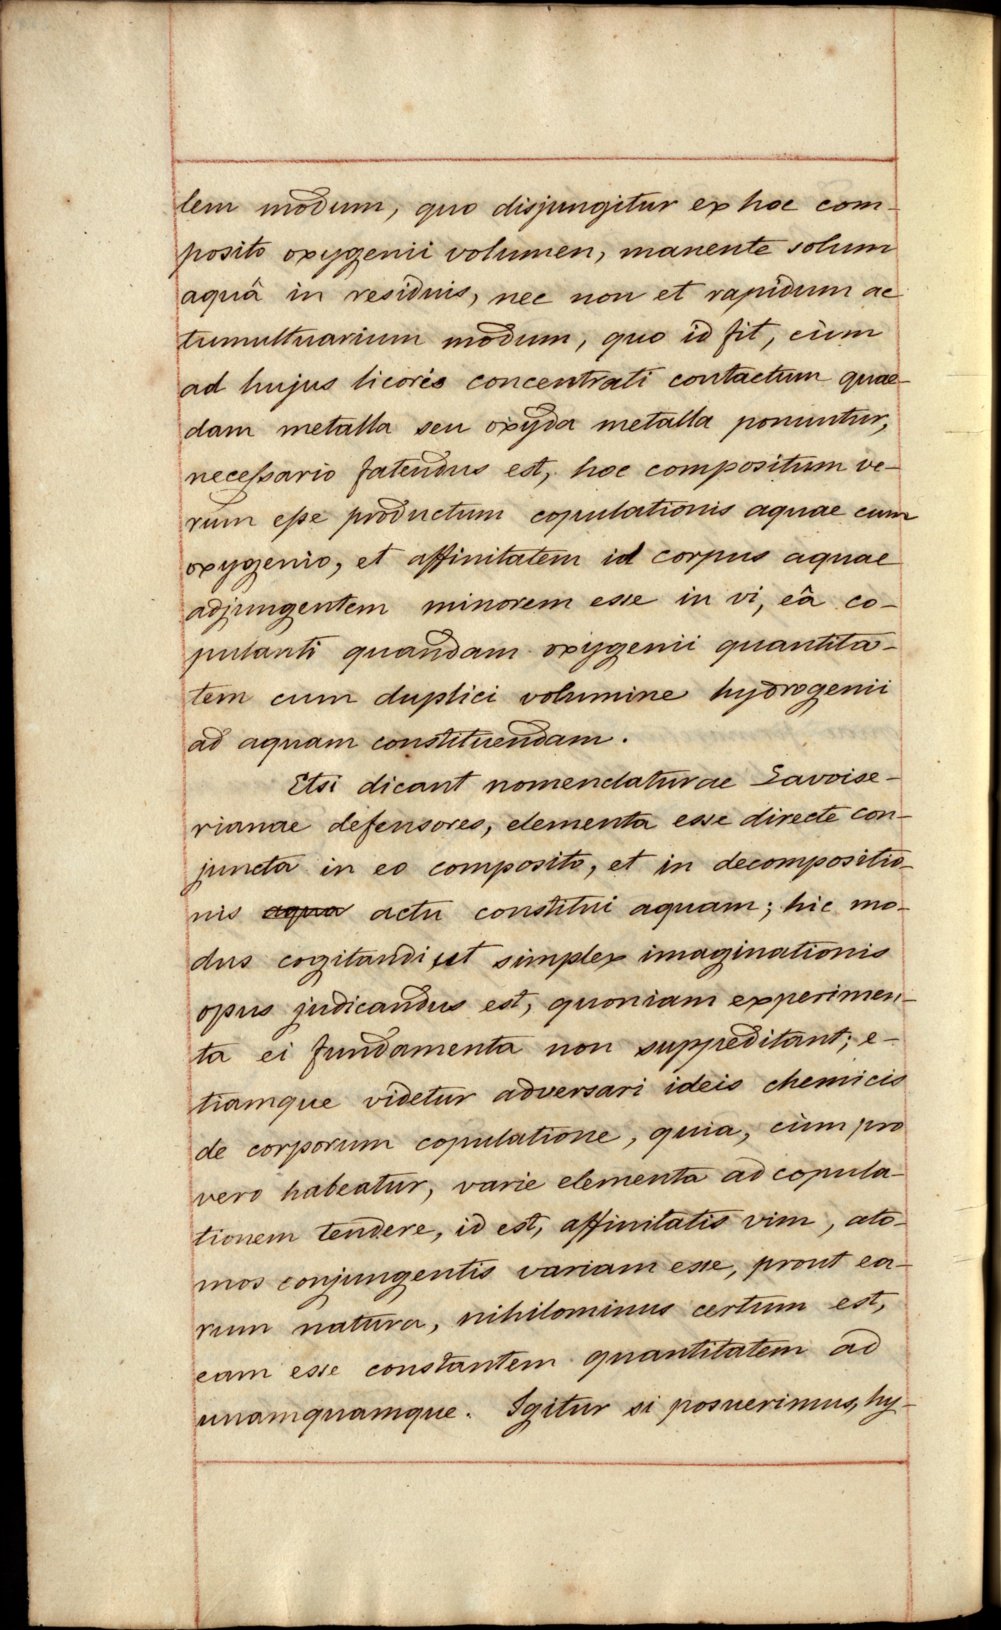 lem modum, quo disjungitur ex hoc com-
posito oxygenii volumen, manente solum
aquâ in residuis, nec non et rapidum ac
tumultuarium modum, quo id fit, cùm
ad hujus licoris concentrati contactum quae-
dam metalla seu oxyda metalla ponuntur,
necessario fatendus est, hoc compositum ve-
rum esse productum copulationis aquae cum
oxygenio, et affinitatem id corpus aquae
adjungentem minorem esse in vi, eâ co-
pulanti quandam oxygenii quantita-
tem cum duplici volumine hydrogenii
ad aquam constituendam.
Etsi dicant nomenclaturae Lavoise-
rianae defensores, elementa esse directe con-
juncta in eo composito, et in decompositio-
nis aqua actu constitui aquam; hic mo-
dus cogitandi ut simplex imaginationis
opus judicandus est, quoniam experimen-
ta ei fundamenta non suppeditant; e-
tiamque videtur adversari ideis chemicis
de corporum copulatione, quia, cùm pro
vero habeatur, varie elementa ad copula-
tionem tendere, id est, affinitatis vim, ato-
mos conjungentis variam esse, prout ea-
rum natura, nihilominus certum est,
eam esse constantem quantitatem ad
unamquamque. Igitur si posuerimus, hy-